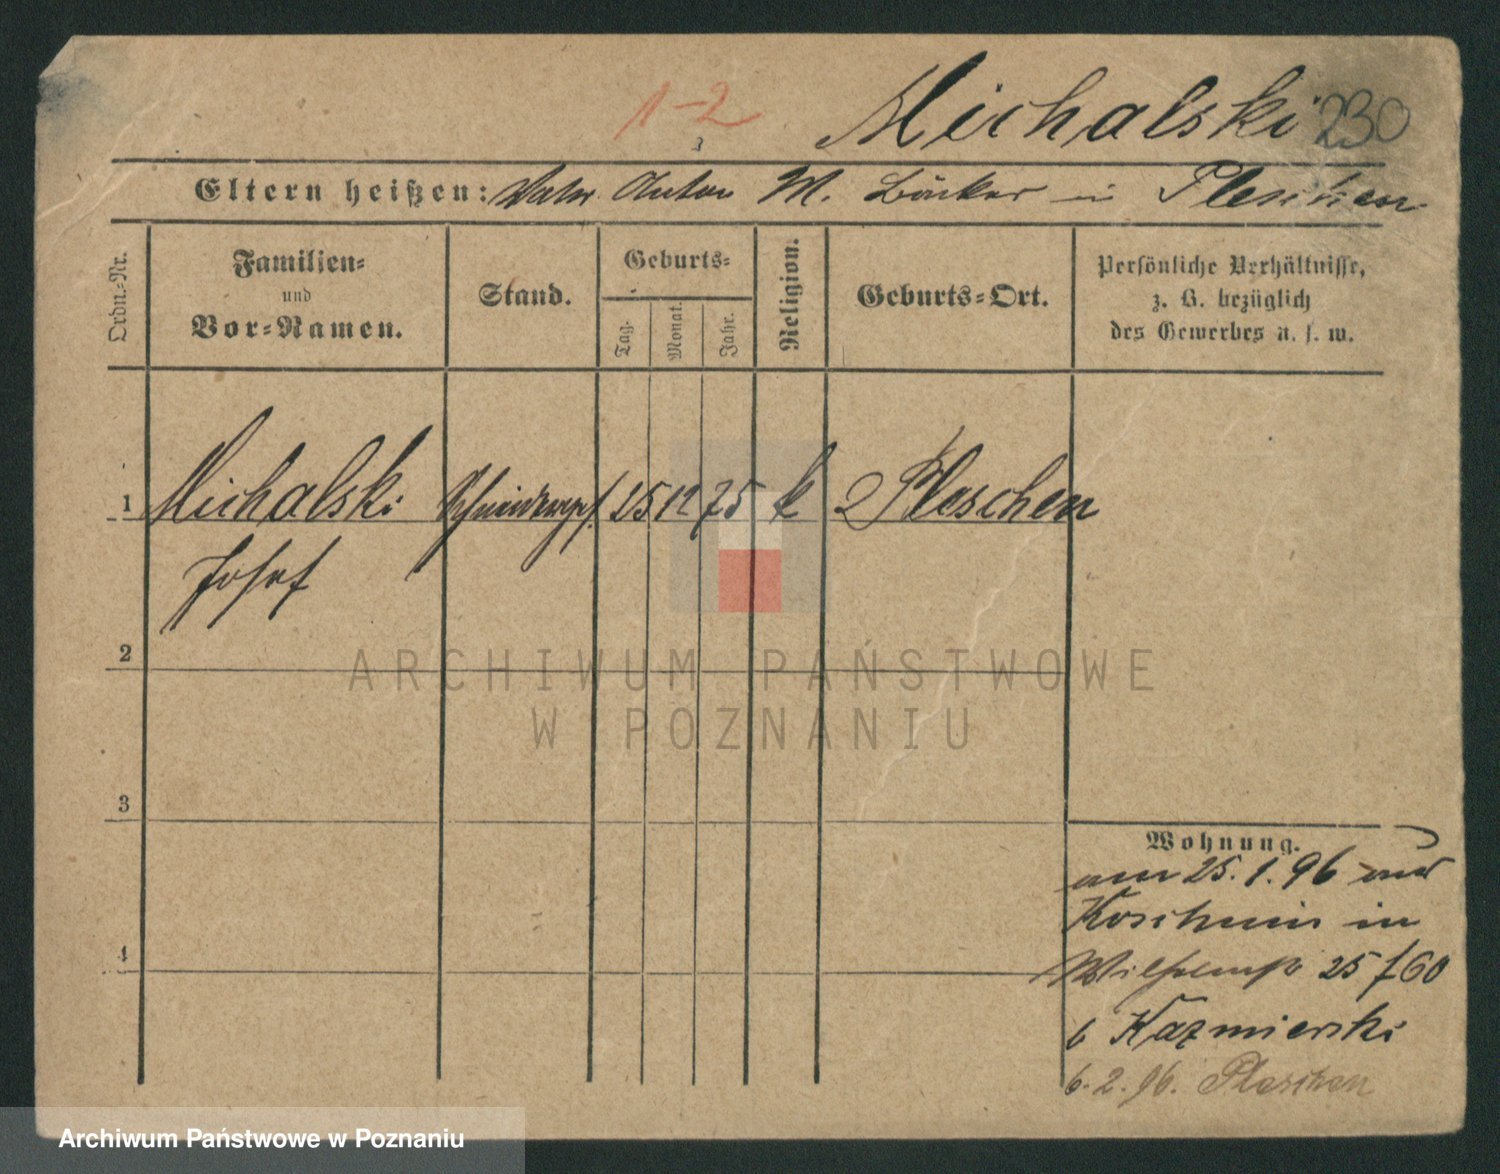 1-2
Michalski 230
Eltern heißen: Vater Anton M. Bäcker in Pleschen
Ordn.-Nr.
Familien-
und
Vor-Namen.
Stand.
Geburts-
Tag.
Monat.
Jahr.
Religion.
Geburts-Ort.
Persönliche Verhältnisse,
z. B. bezüglich
des Gewerbes u. s. w.
1 Michalski Schneiderges. 25 12 75 k Pleschen
Josef
2
3
4
Wohnung.
am 25.1.96 aus
Koschmin in
Wilhelmstr 25/60
b Kazmierski
6.2.96. Pleschen
ARCHIWUM PAŃSTWOWE
W POZNANIU
Archiwum Państwowe w Poznaniu